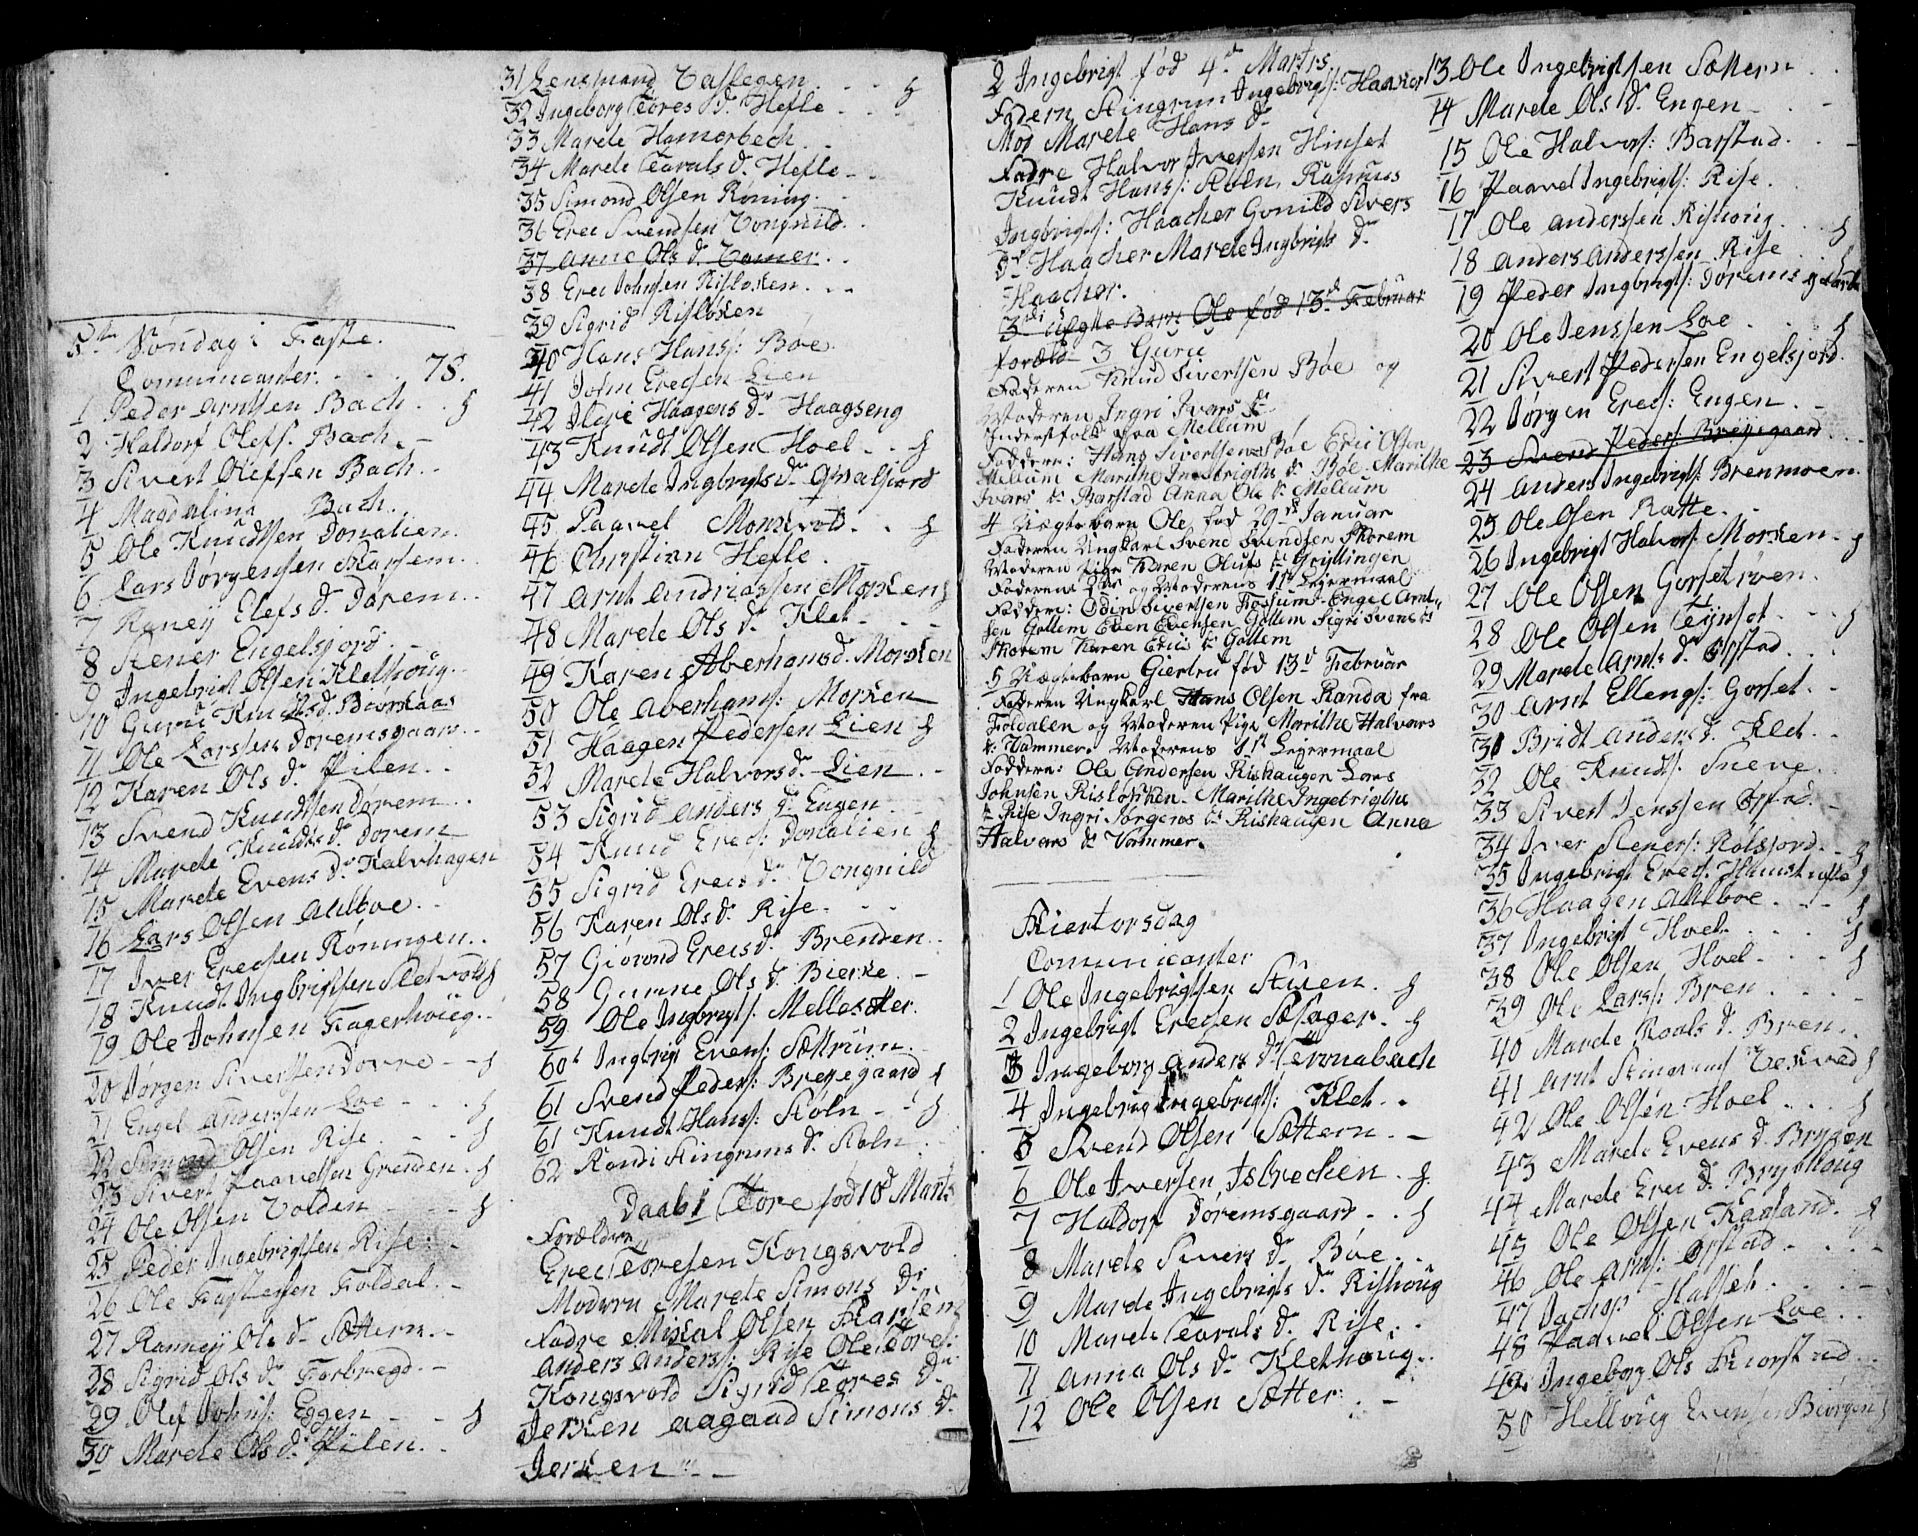 5te Søndag i Faste.
Comunicanter. - - - 78.
1 Peder Arntsen Bach. . §
2 Haldorf Olefs. Bach. -
3 Sivert Olefsen Bach. .
4 Magdalina Bach. .
5 Ole Knudtsen Donalien.
6 Lars Jørgensen
7 Raney Elefs D. Dørem. .
8 Stener Engelsjord. -
9 Ingebrigt Olsen Klethoug. -
10 Guru Knudts D. Biørkaas
11 Ole Larssen Doremsgaard. .
12 Karen Ols Dr Pilen. .
13 Svend Knudtsen Dørem. .
14 Marete Knudts dr Dørem
15 Marete Evens dr Kalvhagen
16 Lars Olsen Aalboe. .
17 Iver Erecsen Røningen. .
18 Knudt Ingbrigtsen Sletvold §
19 Ole Johnsen Fagerhoug. .
20 Jørgen Siverssen Dovre - - §
21 Engel Anderssen Loe - - - §
22 Simond Olsen Rise. - - - §
23 Sivert Paavelsen Grenden. §
24 Ole Olsen Volden - - - §
25 Peder Ingebrigtsen Rise. .
26 Ole Fastesen Foldal. -
27 Ranney Ols dr Sættern. -
28 Sigrid Ols dr Forbregd. -
29 Olef Johns: Eggen - - - §
30 Marete Ols dr Pilen. .
31 Lensmand - - - §
32 Ingeborg Tores D. Hefle - - §
33 Marete Hamerbech. .
34 Marete Taralds D. Hefle - .
35 Simond Olsen Røning. -
36 Erec Svendsen Vongnild. .
37 Anne Ols D. Vamer. .
38 Erec Johnsen Risløkken. . .
39 Sigrid Risløkken
40 Hans Hans: Bøe.
41 John Erecsen Lien
42 Haagens Dr Haagseng
43 Knudt Olsen Hoel - . §
44 Marete Ingbrigts dr
45 Paavel Morkvold. . . §
46 Christian Hefle .
47 Arnt Andriassen Morken §
48 Marete Ols D. Klet - - -
49 Karen Aberhams d. Morken
50 Ole Aberhams: Morken
51 Haagen Pedersen Lien §
52 Marete Halvors d. Lien. -
53 Sigrid Anders d. Engen. -
54 Knud Erecs: Donalien §
55 Sigrid Erecs dr Vongnild
56 Karen Ols dr Rise. - -
57 Giørond Erecs dr Brenden. .
58 Gunne Ols dr Bierke. -
59 Ole Ingbrigts: Mellesetter.
60 Ingbrigt Evens: Sættrum.
61 Svend Peders: Breyegaard §
61 Knudt Hans: Støln - - §
62 Randi Stingrims dr Støln
Daab 1 Tore fød 18d Marts
Forældre
Erec Toresen Kongsvold
Modern Marete Simons dr
Fadre Mikal Olsen
Anders Anders: Rise Ole Tores:
Kongsvold Sigrid Tores dr
Jerken Aagaad Simons dr
Jerken - -
2 Ingebrigt fød 4d Marts
Fadern Stingrim Ingebrigts: Haaker
Mod Marete Hans dr
Fadre Halvor Iversen Hinset
Knudt Hans: Støln Rasmus
Ingbrigts: Haacher Gonild Sivers
Dr Haacher Marete Ingbrigts Dr
Haacher.
3di Uegte Barn Ole fød 13d Februar
Foreld. 3 Guru
Faderen Knud Sivertsen Bøe og
Moderen Ingri Ivars Dr
Inderstfolk paa Mellum
Faddern: Hans Sivertsen Bøe Eric Olsen
Mellum Marithe Ingbrigths dr Bøe. Marithe
Ivars dr Barstad Anna Ols dr Mellum
4 Uægte barn Ole fød 29de Januar
Faderen Ungkarl Svend Svendsen Storem
Moderen Pige Karen Olufs dr
Faderens 2det og Moderens 1ste Leyermaal
Faddere: Odin Sivertsen Engel Arnt
sen Gollem Even Evensen Gollem Sigri Svends dr
Storem Karen Erics dr Gollem
5 Uægte barn Giertru fød 13d Februar
Faderen Ungkarl Hans Olsen Randa fra
Foldalen og Moderen Pige Marithe Halvars
dr: Vammer. Moderens 1st Leyermaal
Faddere: Ole Andersen Rishaugen Lars
Johnsen Risløkken. Marithe Ingebrigths
dr Rise Ingri Jørgens dr Rishaugen Anna
Halvars dr Vammer.
Skiertorsdag
Comunicanter
1 Ole Ingebrigtsen Stuen. §
2 Ingebrigt Erecsen Sæsager. §
3 Ingeborg Anders dr Tronabach
4 Ingebrigt Ingebrigts: Klet. .
5 Svend Olsen Sættern. -
6 Ole Iversen Isbrecken. §
7 Haldorf Doremsgaard - . §
8 Marete Sivers dr Bøe. .
9 Marete Ingebrigts dr Rishoug
10 Marete Taralds dr Rise. .
11 Anna Ols dr Klethoug. .
12 Ole Olsen Sætter. . -
13 Ole Ingebrigtsen Sættern . .
14 Marete Ols dr Engen - . -
15 Ole Halvors: Barstad. . -
16 Paavel Ingebrigts: Rise.
17 Ole Anderssen Rishoug. . . §
18 Anders Anderssen Rise . §
19 Peder Ingbrigts: Dorems
20 Ole Jenssen Loe . . . §
21 Sivert Pedersen Engelsjord.
22 Jørgen Erecs: Engen. . -
23 Svend Peders: Breyegaard . .
24 Anders Ingebrigts: Brenmoen.
25 Ole Olsen Ratte. . .
26 Ingebrigt Halvors: Morken - §
27 Ole Olsen Gorsetrøen.
28 Ole Olsen Tynset. - - §
29 Marete Arnts dr Opstad. . .
30 Arnt Ellengs: Gorset. .
31 Bridt Anders d. Klet. .
32 Ole Knudts: Sneve. . .
33 Sivert Jenssen
34 Iver Steners: Rolsjord. . §
35 Ingebrigt Erecs. §
36 Haagen Aalboe. . . . §
37 Ingebrigt Hoel. . . . §
38 Ole Olsen Hoel - . . §
39 Ole Lars: Bren . . . -
40 Marete Roals dr Bren. .
41 Arnt §
42 Ole Olsen Hoel . . . §
43 Marete Evens dr
44 Marete Erecs d.
45 Ole Olsen . §
46 Ole Arnts: Opstad. . .
47 Jachop Halset. . . -
48 Paavel Olsen Loe . . .
49 Ingeborg Ols
50 Evensen